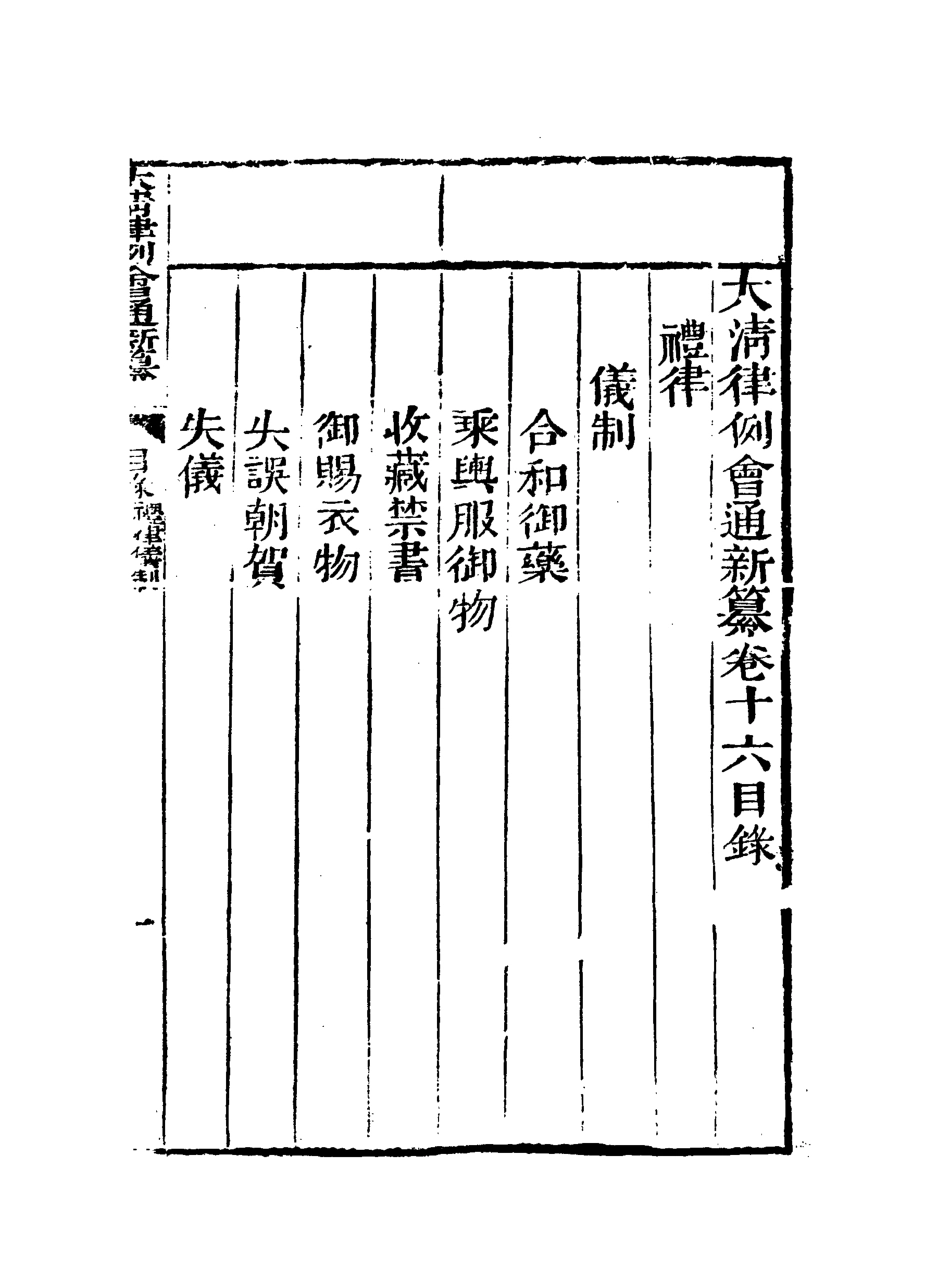 大清律例會通新纂卷十六目錄
禮律
儀制
合和御藥
乘輿服御物
收藏禁書
御賜衣物
失誤朝賀
失儀
大清律例會通新纂
目錄禮律儀制
一